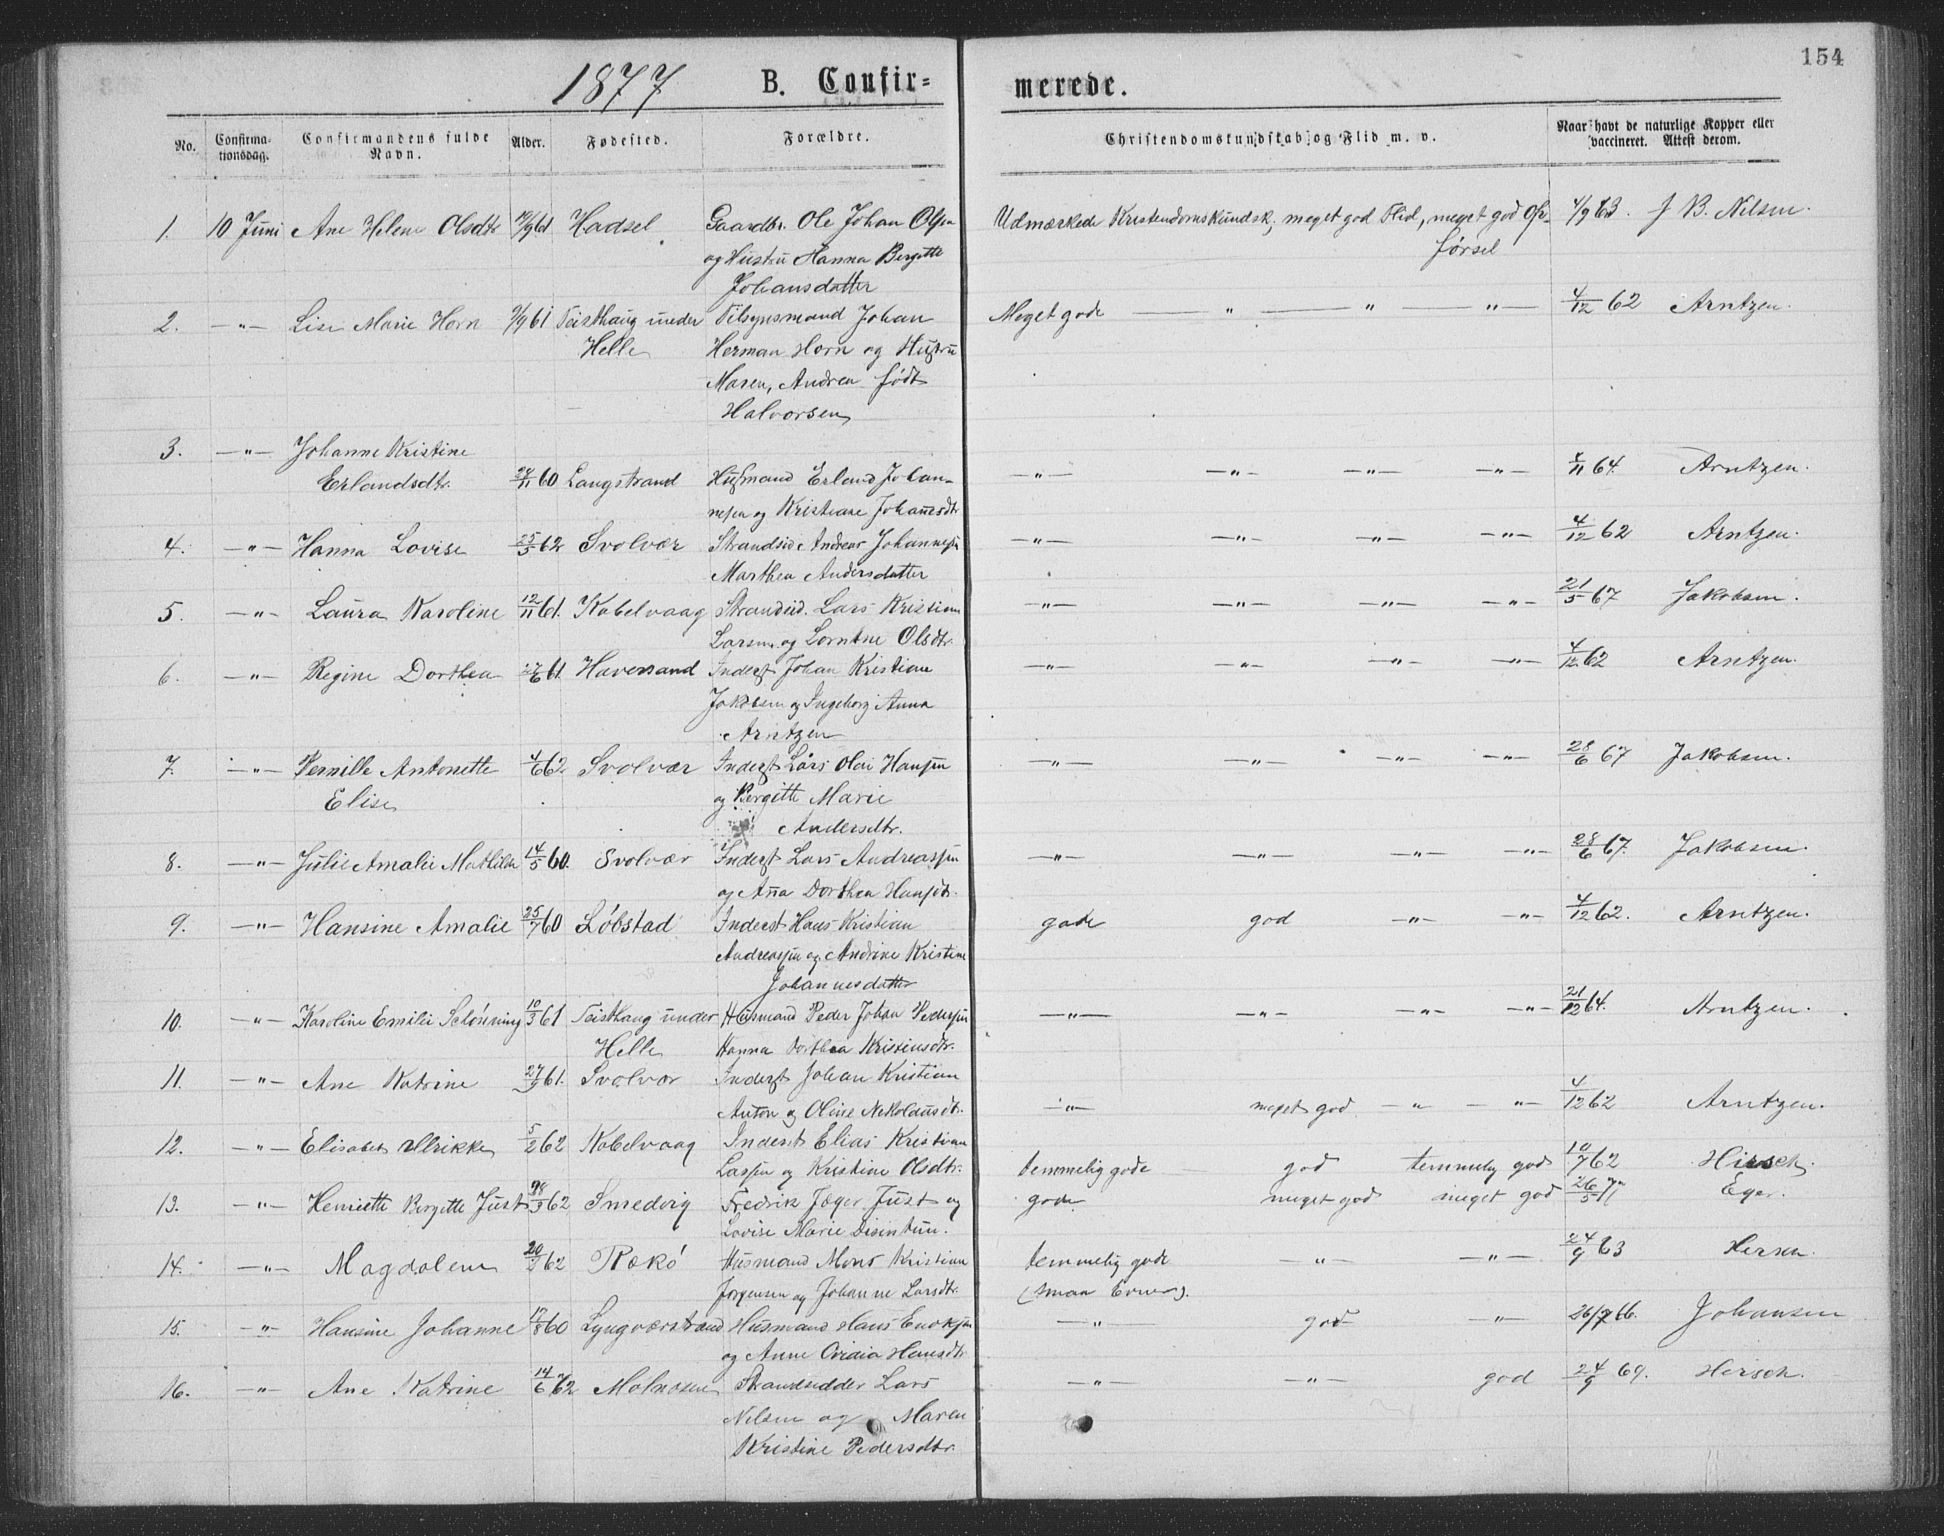 154
1877 B. Confir= merede.
No. Confirma-tionsdag. Confirmandens fulde Navn. Alder. Fødested. Forældre. Christendomskundskab og Flid m. v. Naar havt de naturlige Kopper eller vaccineret. Attest derom.
1. 10 Juni Ane Helene Olsdtr Hadsel Gaardbr. Ole Johan Olsen Udmærkede Kristendomskundsk, meget god Flid, meget god Op- 4/9 63. J B. Nilsen.
og Hustru Hanna Bergitte førsel
Johansdatter
2. -"- Lise Marie Horn 2/9 61 Teisthaug under Tilsynsmand Johan Meget gode " " " 4/12 62 Arntzen.
Helle Herman Horn og Hustru
Maren, Andrea født
Halvorsen
3. -"- Johanne Kristine
Erlandsdtr. 24/11 60 Langstrand Husmand Erland Johan- -"- -"- -"- -"- 4/11 64. Arntzen.
nesen og Kristiane Johanesdtr
4. -"- Hanna Lovise 25/5 62 Svolvær Strandsid. Andreas Johannesen -"- -"- -"- -"- 4/12 62 Arntzen.
Marthea Andersdatter
5. -"- Laura Karoline 12/11 61. Kabelvaag Strandsid. Lars Kristian -"- -"- -"- -"- 21/5 67 Jakobsen.
Larsen og Lorntne Olsdtr.
6. -"- Regine Dorthea 27/6 61. Haversand Inderst Johan Kristian -"- -"- -"- -"- 4/12 62 Arntzen.
Jakobsen og Ingeborg Anna
Arntzen
7. -"- Pernille Antonette 4/6 62 Svolvær Inderst Lars Olai Hansen -"- -"- -"- -"- 28/6 67 Jakobsen.
Elise og Bergitte Marie
Andersdtr.
8. -"- Julie Amalie Mathilde 14/5 60. Svolvær Inderst Lars Andreassen -"- -"- -"- -"- 28/6 67. Jakobsen.
og Ana Dorthea Hansdtr.
9. -"- Hansine Amalie 25/7 60 Løbstad Inderst Hans Kristian gode god -"- -"- 4/12 62. Arntzen.
Andreassen og Andrine Kristine
Johannesdatter
10. -"- Karoline Emilie Schönning 10/3 61 Teisthaug under Husmand Peder Johan Pedersen -"- -"- -"- -"- 21/12 64. Arntzen.
Helle Hanna Dorthea Kristensdtr.
11. -"- Ane Katrine 27/9 61. Svolvær Inderst Johan Kristian
Anton og Oline Nikolausdtr. -"- meget god -"- -"- 4/12 62 Arntzen.
12. -"- Elisabet Ulrikke 5/2 62 Kabelvaag Inderst Elias Kristian
Lassen og Kristine Olsdtr. temmelig gode god temmelig god 10/7 62 Hirsch.
13. -"- Henriette Bergitte Just 28/3 62 Smedvig Fredrik Jæger Just og gode meget god meget god 26/5 77 Eger.
Lovise Marie Disentun.
14. -"- Magdalene 20/7 62 Rækø Husmand Mons Kristian temmelig gode -"- -"- 24/9 63 Hirsch.
Jørgensen og Johanne Larsdtr. (smaa Evner).
15. -"- Hansine Johanne 17/8 60 Lyngværstrand Husmand Hans Enoksen -"- god -"- 26/7 66. Johansen
og Anne Ovedia Hansdtr
16. -"- Ane Katrine 14/6 62 Molnosen Strandsidder Lars -"- -"- god 24/9 69. Hirsch.
Nilsen og Maren
Kristine Pedersdtr.